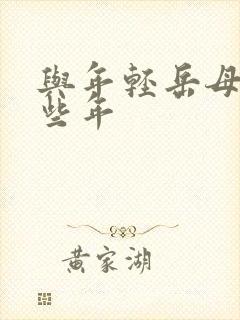 與年輕岳母
些年
黃家湖